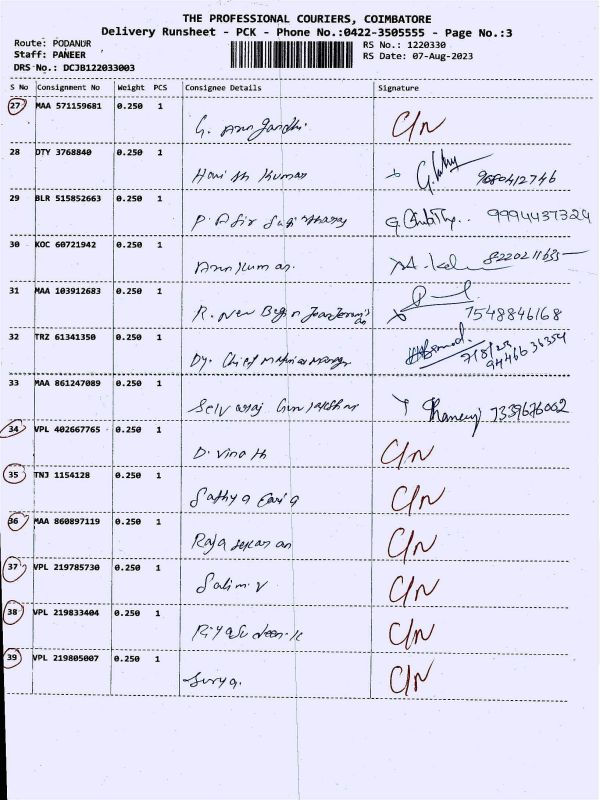 THE PROFESSIONAL COURIERS, COIMBATORE
Delivery Runsheet - PCK - Phone No.:0422-3505555 - Page No.:3
Route: PODANUR
RS No.: 1220330
Staff: PANEER
RS Date: 07-Aug-2023
DRS No.: DCJB122033003
S No Consignment No Weight PCS Consignee Details Signature
27 MAA 571159681 0.250 1
G. Arun Gandhi. C/N
28 DTY 3768840 0.250 1
Harish Kumar 9680412746
29 BLR 515852663 0.250 1
P. 9994437324
30 KOC 60721942 0.250 1
Arun Kumar. 8220211635
31 MAA 103912683 0.250 1
R. New Begin 7548846168
32 TRZ 61341350 0.250 1
Dy. Chief Manager 7/8/23 9446636354
33 MAA 861247089 0.250 1
Selvaraj 7339676002
34 VPL 402667765 0.250 1
D. Vinoth C/N
35 TNJ 1154128 0.250 1
Sathya C/N
36 MAA 860897119 0.250 1
Rajasekaran C/N
37 VPL 219785730 0.250 1
Salim. V C/N
38 VPL 219833404 0.250 1
Riyasudeen. K C/N
39 VPL 219805007 0.250 1
Surya. C/N